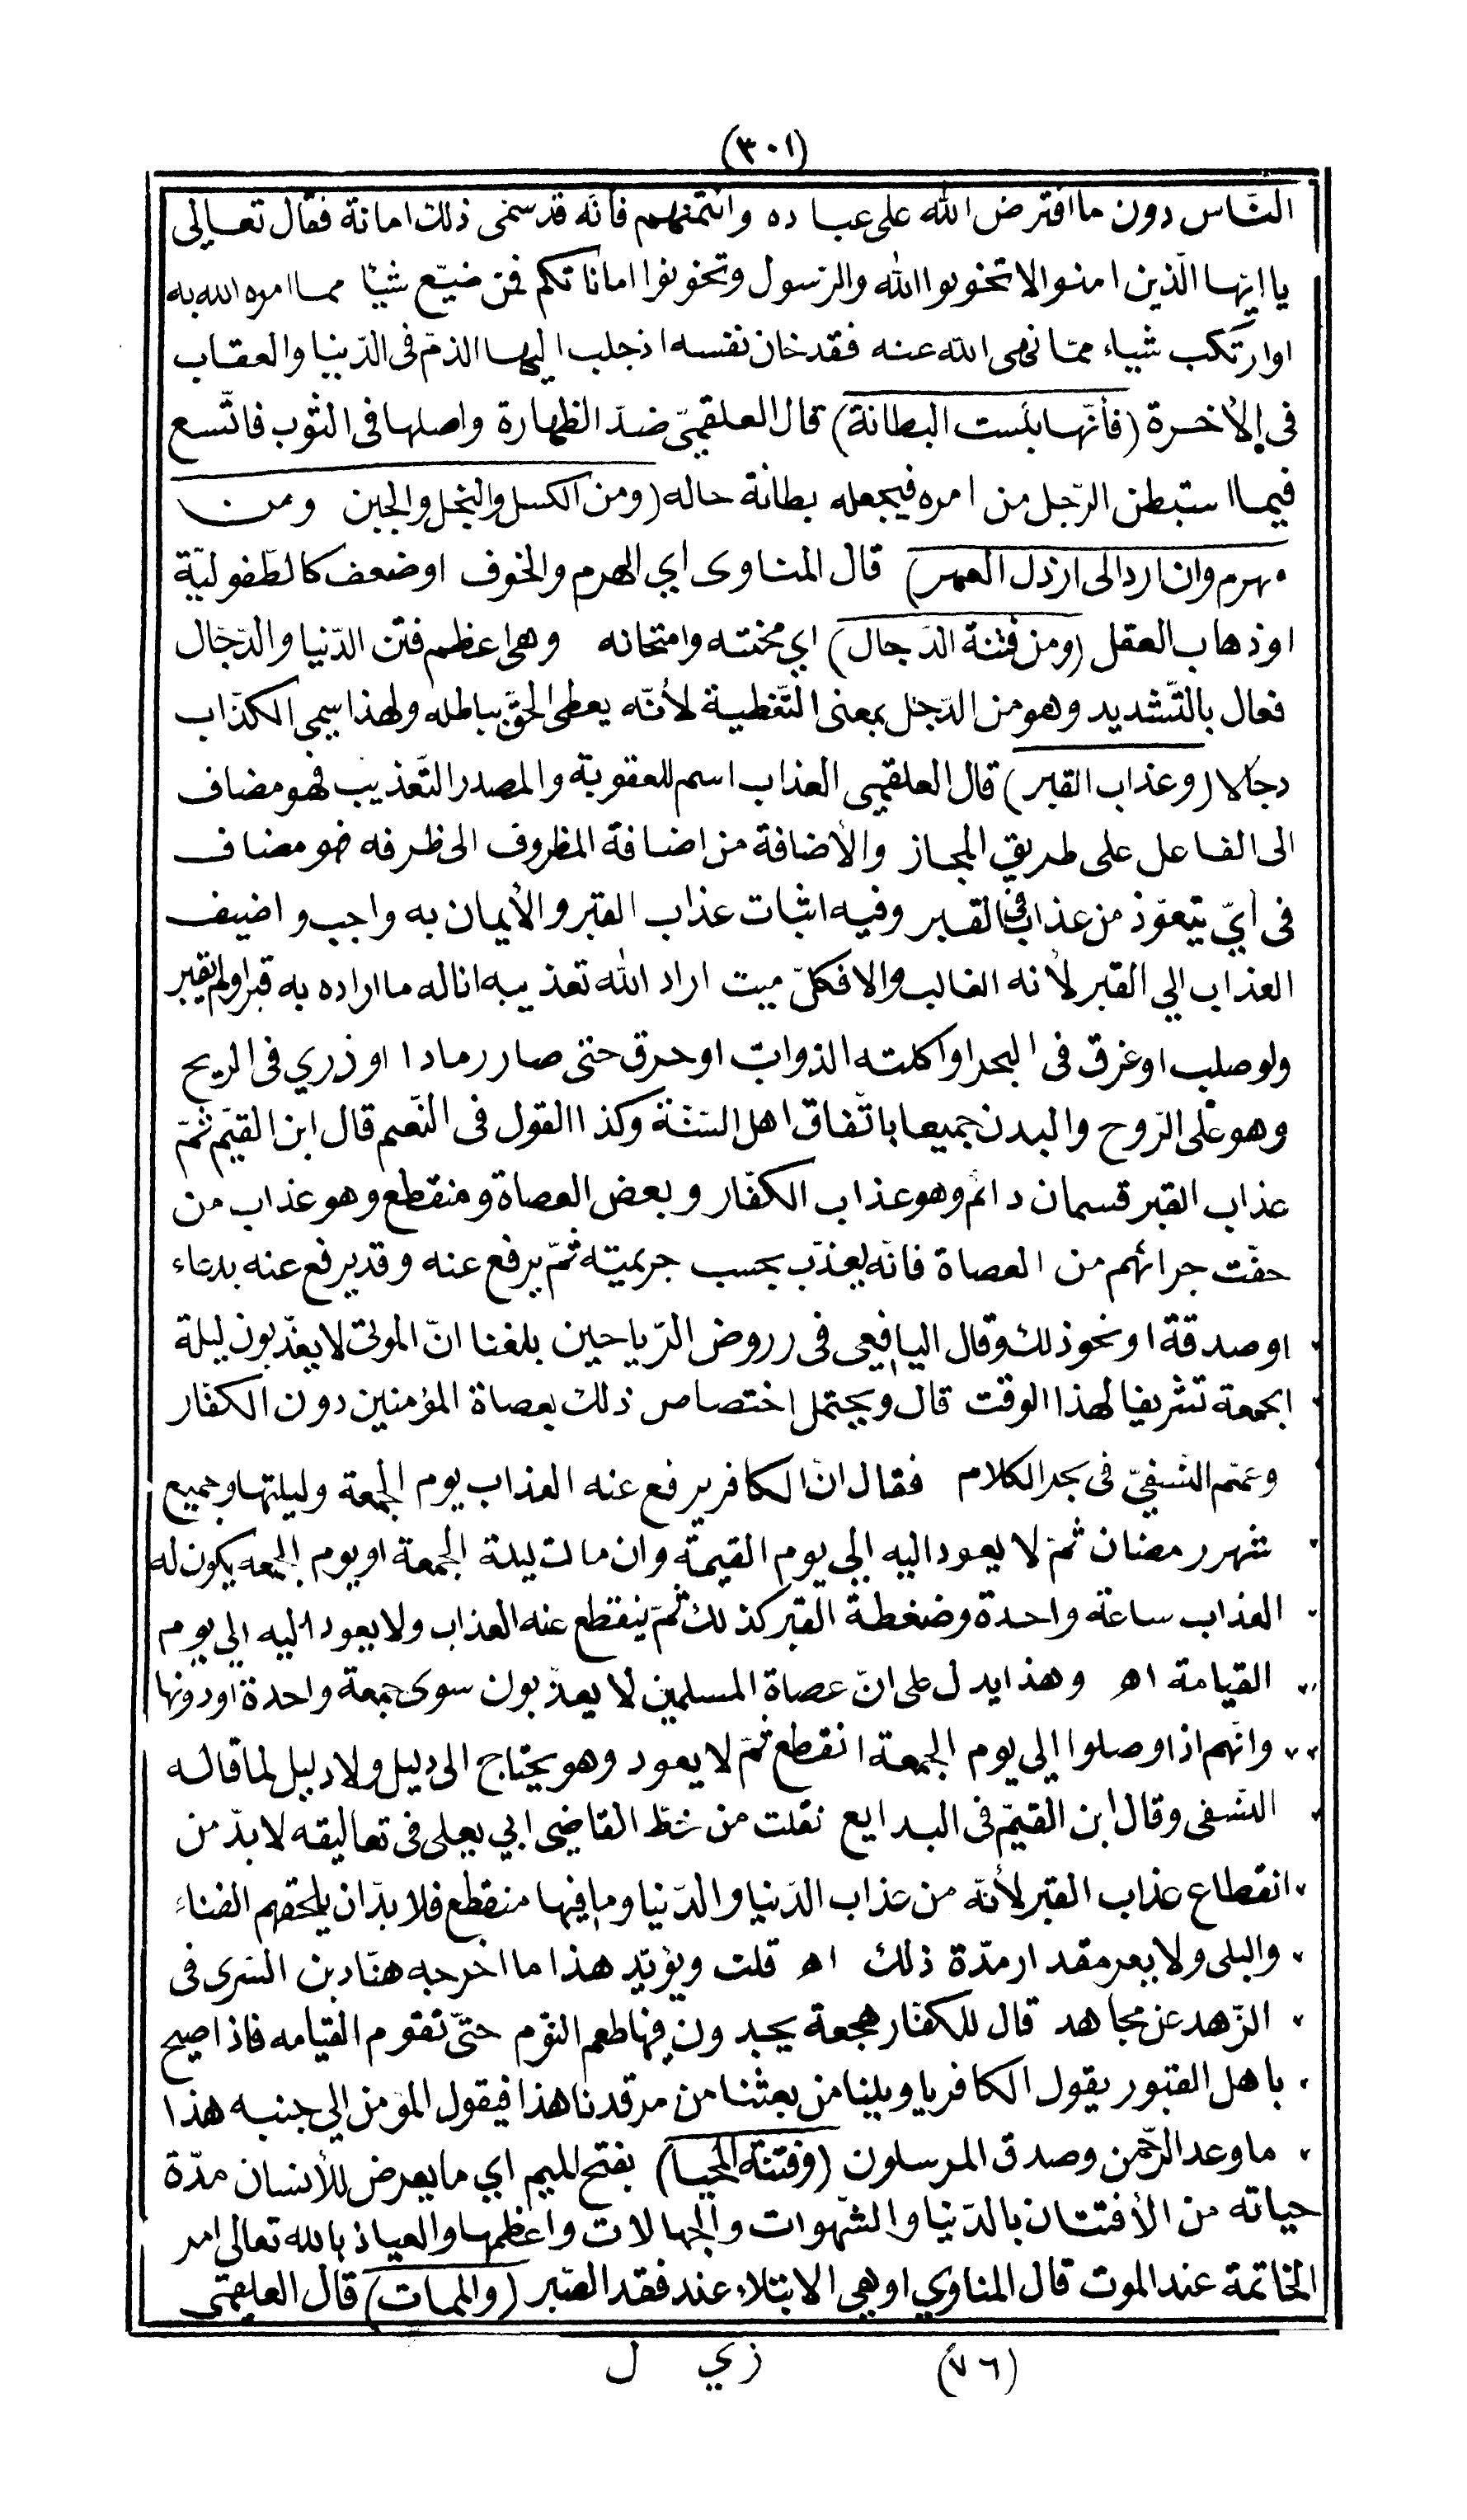 (٣٠١)
النّاس دون ما افترض الله على عباده وائتمنهم فأنّه قد سمّى ذلك امانة فقال تعالى
يا ايّها الّذين امنوا لا تخونوا الله والرّسول وتخونوا اماناتكم فمن ضيّع شيئا مما امره الله به
او ارتكب شياء ممّا نهى الله عنه فقد خان نفسه اذ جلب اليها الذمّ فى الدّنيا والعقاب
فى الأخرة (فأنّها بئست البطانة) قال العلقميّ ضدّ الظهارة واصلها فى الثوب فاتّسع
فيما استبطن الرّجل من امره فيجعله بطانة حاله (ومن الكسل والبخل والجبن ومن
الهرم وان ارد الى ارذل العمر) قال المناوى اي الهرم والخوف او ضعف كالطّفوليّة
او ذهاب العقل (ومن فتنة الدّجال) اي محنته وامتحانه وهى اعظم فتن الدّنيا والدّجّال
فعال بالتّشديد وهو من الدّجل بمعنى التّغطية لأنّه يعطى الحقّ بباطله ولهذا سمي الكذّاب
دجّالا (وعذاب القبر) قال العلقمي العذاب اسم للعقوبة والمصدر التّعذيب فهو مضاف
الى الفاعل على طريق المجاز والأضافة من اضافة المظروف الى ظرفه فهو مضاف
فى أيّ يتعوّذ من عذاب فى القبر وفيه اثبات عذاب القبر والأيمان به واجب واضيف
العذاب الي القبر لأنه الغالب والا فكلّ ميت اراد الله تعذيبه اناله ما اراده به قبر او لم يقبر
ولو صلب او غرق فى البحر او اكلته الدّوابّ او حرق حتى صار رمادا او ذري فى الريح
وهو على الرّوح والبدن جميعا باتّفاق اهل السّنّة وكذا القول فى النّعيم قال ابن القيّم ثمّ
عذاب القبر قسمان دائم وهو عذاب الكفّار وبعض العصاة ومنقطع وهو عذاب من
خفّت جرائمهم من العصاة فانّه يعذّب بحسب جريمته ثمّ يرفع عنه وقد يرفع عنه بدعاء
او صدقة او نحو ذلك وقال اليافعي فى روض الرّياحين بلغنا انّ الموتى لا يعذّبون ليلة
الجمعة تشريفا لهذا الوقت قال ويحتمل اختصاص ذلك بعصاة المؤمنين دون الكفّار
وعمّم النّسفيّ فى بحر الكلام فقال انّ الكافر يرفع عنه العذاب يوم الجمعة وليلتها وجميع
شهر رمضان ثمّ لا يعود اليه الي يوم القيمة وان مات ليلة الجمعة او يوم الجمعه يكون له
العذاب ساعة واحدة وضغطة القبر كذلك ثمّ ينقطع عنه العذاب ولا يعود اليه الي يوم
القيامة اه وهذا يدل على انّ عصاة المسلمين لا يعذّبون سوى جمعة واحدة او دونها
وانّهم اذا وصلوا الي يوم الجمعة انقطع ثمّ لا يعود وهو يحتاج الى دليل ولا دليل لما قاله
النّسفى وقال ابن القيّم فى البدايع نقلت من خطّ القاضي ابي يعلى فى تعاليقه لا بدّ من
انقطاع عذاب القبر لأنّه من عذاب الدّنيا والدّنيا وما فيها منقطع فلا بدّ ان يلحقهم الفناء
والبلى ولا يعرف مقدار مدّة ذلك اه قلت ويؤيّد هذا ما اخرجه هنّاد بن السّرى فى
الزّهد عن مجاهد قال للكفّار هجعة يجدون فيها طعم النّوم حتّى تقوم القيامه فاذا صيح
باهل القبور يقول الكافر يا ويلنا من بعثنا من مرقدنا هذا فيقول المؤمن الي جنبه هذا
ما وعد الرّحمن وصدق المرسلون (وفتنة المحيا) بفتح الميم اي ما يعرض للأنسان مدّة
حياته من الأفتتان بالدّنيا والشّهوات والجهالات واعظمها والعياذ بالله تعالى امر
الخاتمة عند الموت قال المناوي او هي الابتلاء عند فقد الصّبر (والممات) قال العلقمّى
(٧٦) زي ل